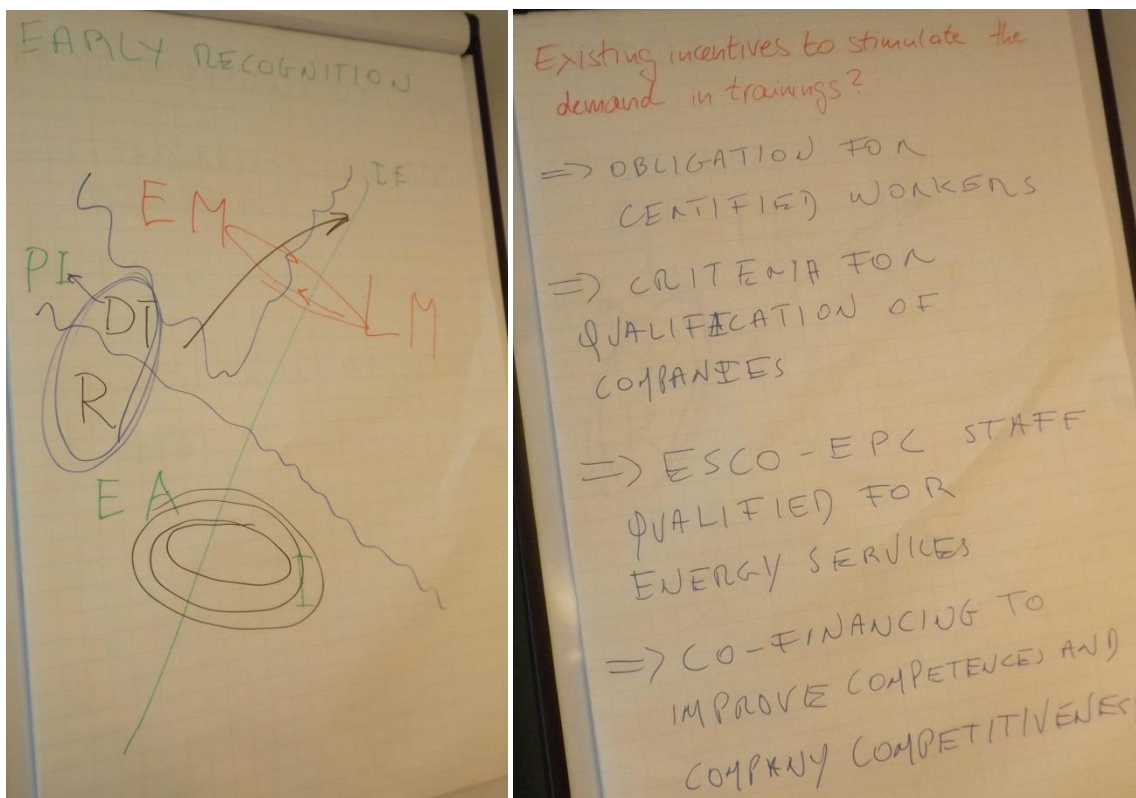 EARLY RECOGNITION
IE
EM
PI
LM
DT
R
EA
I
Existing incentives to stimulate the
demand in trainings?
=> OBLIGATION FOR
CERTIFIED WORKERS
=> CRITERIA FOR
QUALIFICATION OF
COMPANIES
=> ESCO-EPC STAFF
QUALIFIED FOR
ENERGY SERVICES
=> CO-FINANCING TO
IMPROVE COMPETENCES AND
COMPANY COMPETITIVENES